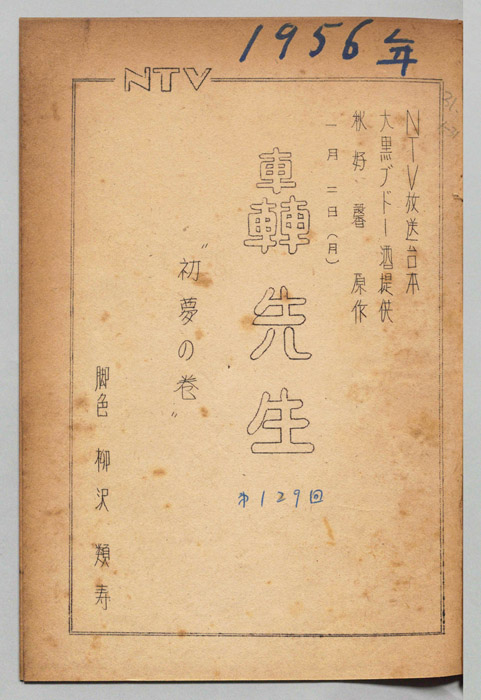 1956年
NTV
NTV放送台本
大黒ブドー酒提供
秋好 馨 原作
一月二日(月)
轟先生
"初夢の巻"
第129回
脚色 柳沢類寿